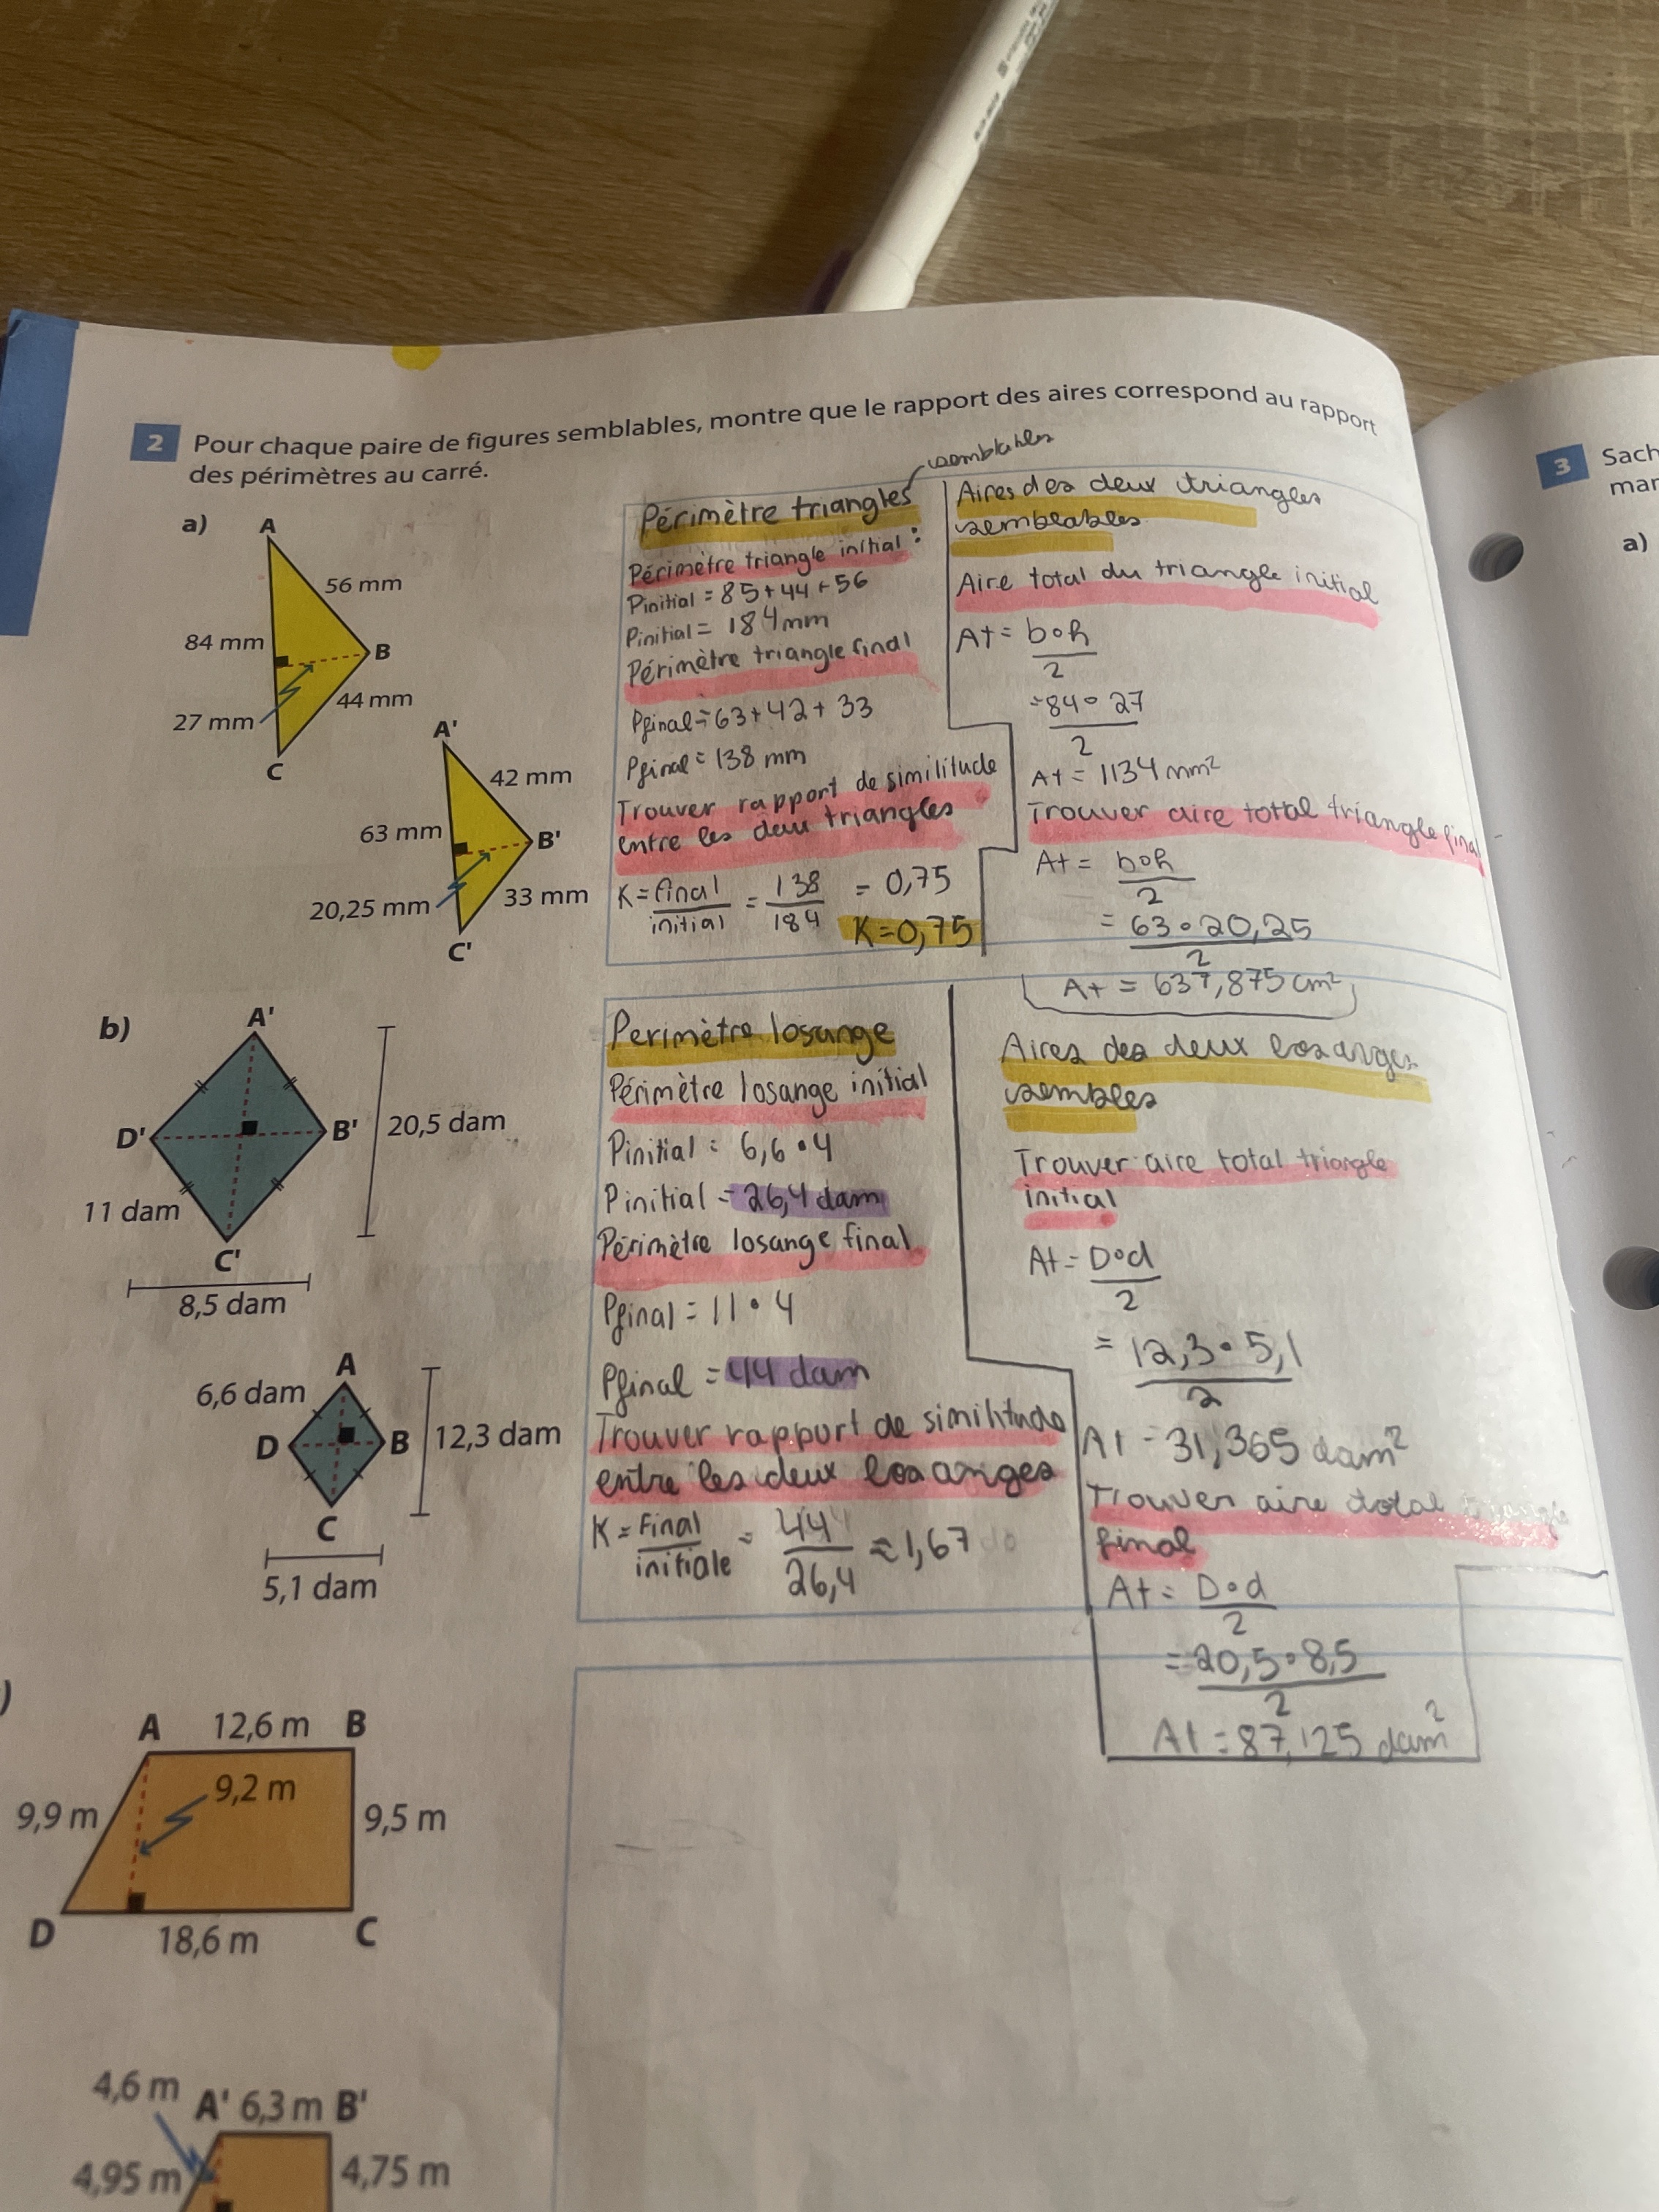 2 Pour chaque paire de figures semblables, montre que le rapport des aires correspond au rapport
des périmètres au carré.
a)
A
56 mm
84 mm
B
44 mm
27 mm
C
A'
42 mm
63 mm
B'
33 mm
20,25 mm
C'
semblables
Périmètre triangles
Périmètre triangle initial :
Pinitial = 85+44+56
Pinitial = 184mm
Périmètre triangle final
Pfinal = 63+42+33
Pfinal = 138 mm
Trouver rapport de similitude
entre les deux triangles
K = final/initial = 138/184 = 0,75
K=0,75
Aires des deux triangles
semblables
Aire total du triangle initial
At = b∘h/2
= 84∘27/2
At = 1134 mm²
Trouver aire total triangle final
At = b∘h/2
= 63∘20,25/2
At = 637,875 cm²
b)
A'
D'
B'
20,5 dam
11 dam
C'
8,5 dam
A
6,6 dam
D
B
12,3 dam
C
5,1 dam
Perimètre losange
Périmètre losange initial
Pinitial = 6,6•4
Pinitial = 26,4 dam
Périmètre losange final
Pfinal = 11•4
Pfinal = 44 dam
Trouver rapport de similitude
entre les deux losanges
K = Final/initiale = 44/26,4 ≈ 1,67
Aires des deux losanges
sembles
Trouver aire total triangle
initial
At = D∘d/2
= 12,3∘5,1/2
At = 31,365 dam²
Trouver aire total triangle
final
At = D∘d/2
= 20,5∘8,5/2
At = 87,125 dam²
)
A 12,6 m B
9,2 m
9,9 m
9,5 m
D
18,6 m
C
4,6 m
A' 6,3 m B'
4,95 m
4,75 m
3 Sach
mar
a)